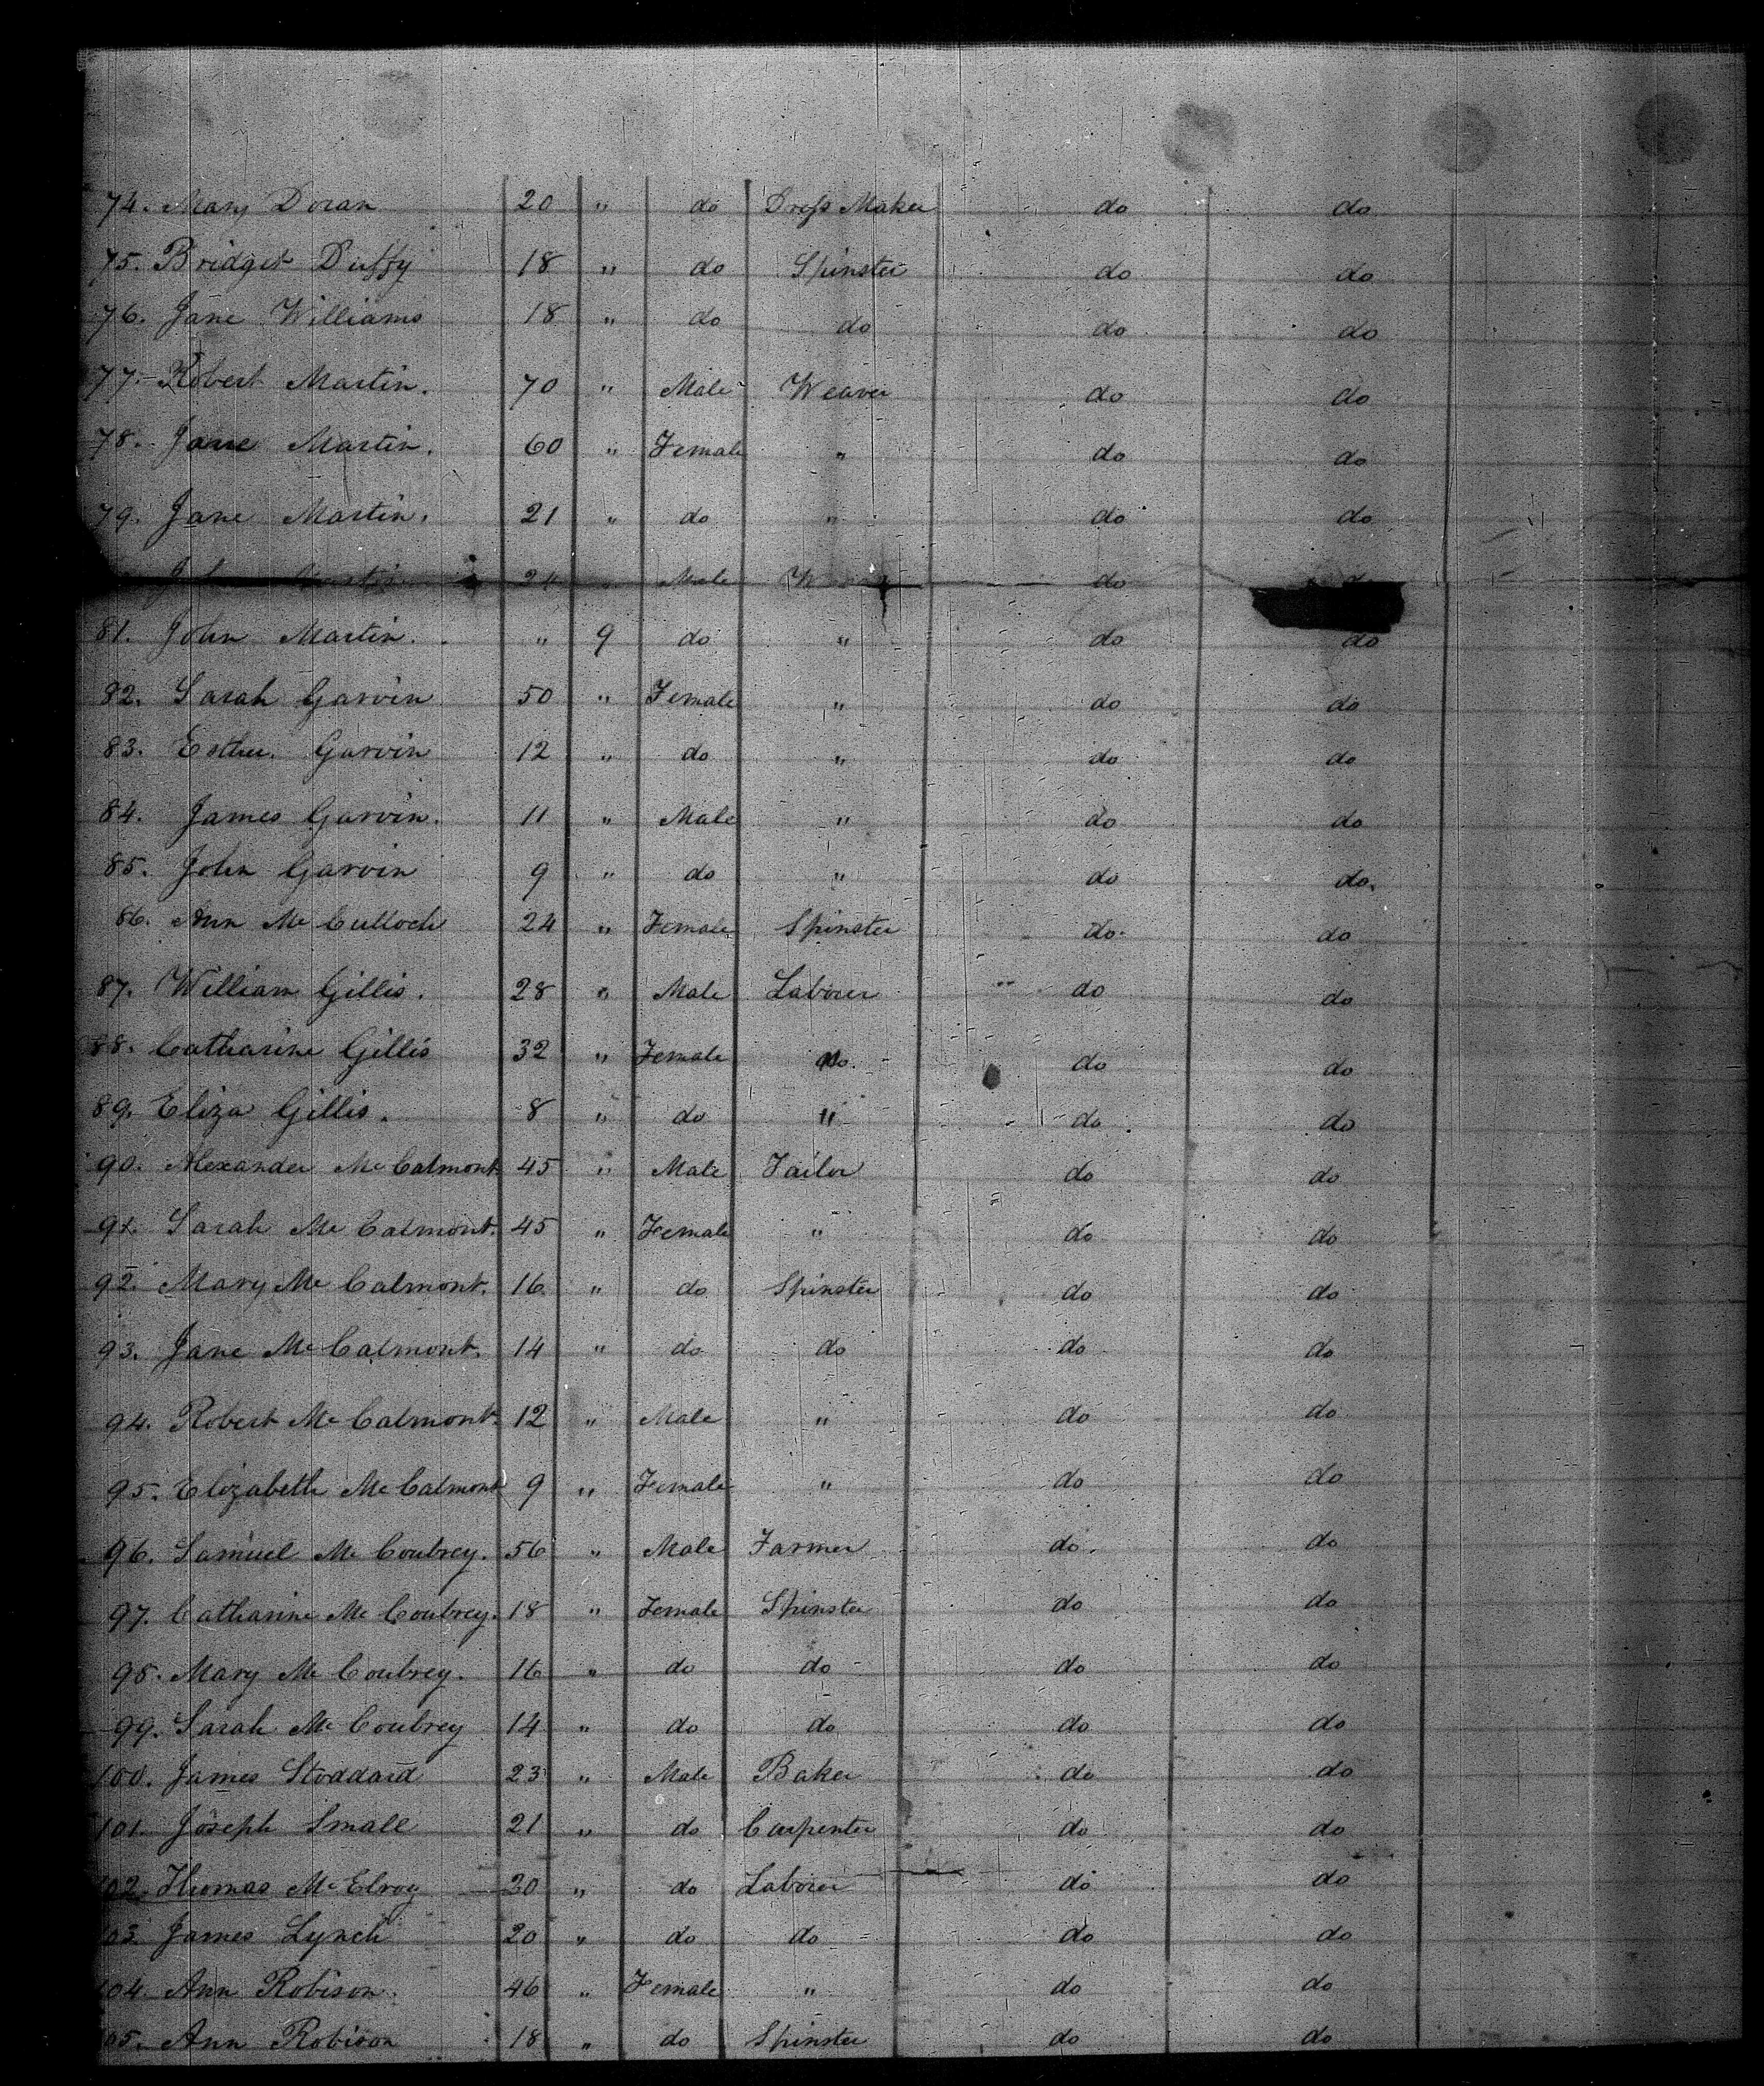 74. Mary Doran 20 " do Dress Maker do do
75. Bridget Duffy 18 " do Spinster do do
76. Jane Williams 18 " do do do do
77. Robert Martin. 70 " Male Weaver do do
78. Jane Martin. 60 " Female " do do
79. Jane Martin. 21 " do " do do
Martin 24 Male do
81. John Martin. " 9 do " do do
82. Sarah Garvin 50 " Female " do do
83. Esther. Garvin 12 " do " do do
84. James Garvin. 11 " Male " do do
85. John Garvin 9 " do " do do.
86. Ann Mc Culloch 24 " Female Spinster do. do
87. William Gillis. 28 " Male Laborer do do
88. Catharine Gillis 32 " Female do. do do
89. Eliza Gillis. 8 " do " do do
90. Alexander Mc Calmont 45 " Male Tailor do do
91. Sarah Mc Calmont. 45 " Female " do do
92. Mary Mc Calmont. 16 " do Spinster do do
93. Jane Mc Calmont. 14 " do do do do
94. Robert Mc Calmont. 12 " Male " do do
95. Elizabeth Mc Calmont 9 " Female " do do
96. Samuel Mc Coubrey. 56 " Male Farmer do. do
97. Catharine Mc Coubrey. 18 " Female Spinster do do
98. Mary Mc Coubrey. 16 " do do do do
99. Sarah Mc Coubrey 14 " do do do do
100. James Stoddard 23 " Male Baker do do
101. Joseph Small 21 " do Carpenter do do
102. Thomas McElroy 20 " do Laborer do do
103. James Lynch 20 " do do do do
104. Ann Robison. 46 " Female " do do
105. Ann Robison 18 " do Spinster do do